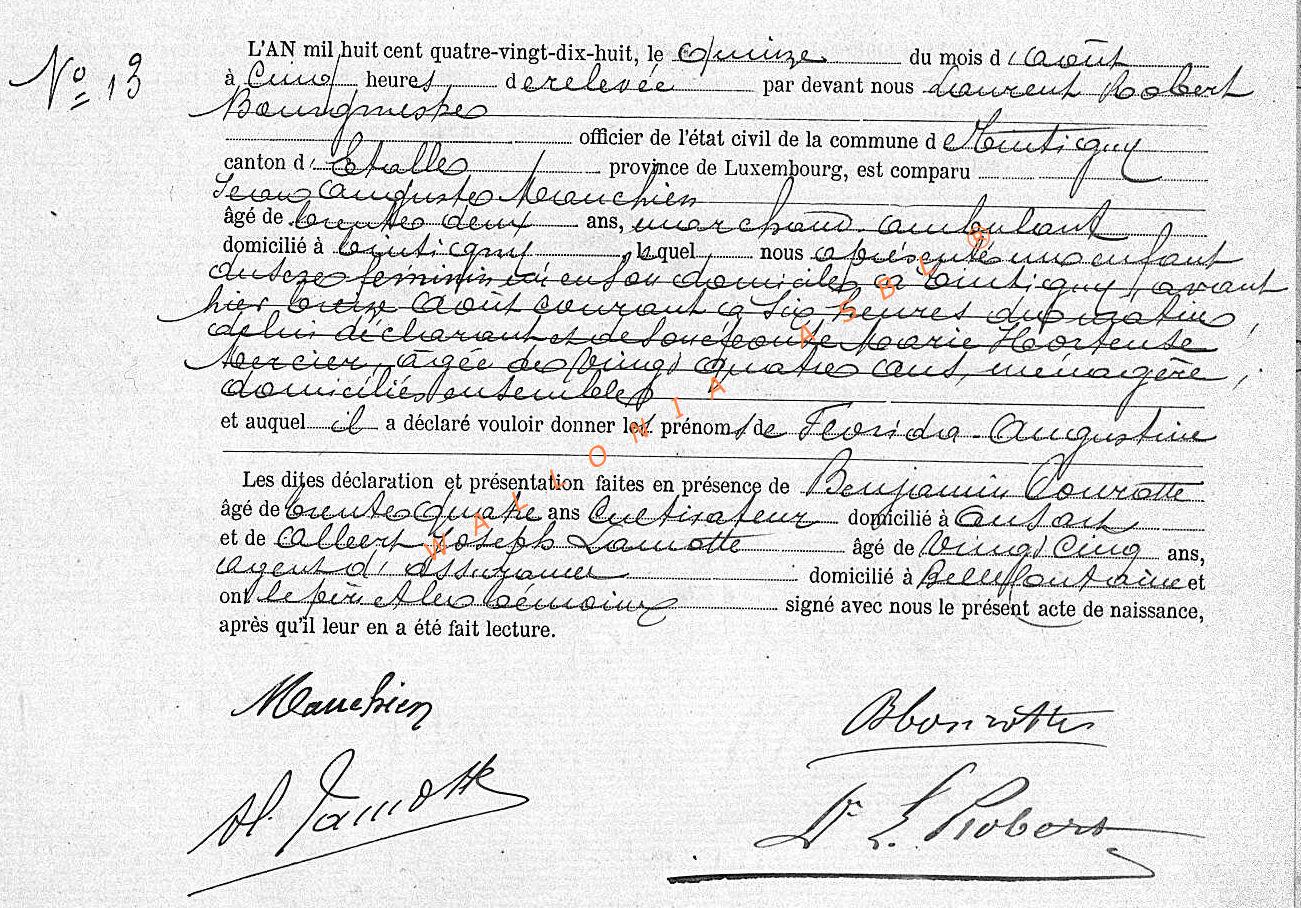 N° 13
L'AN mil huit cent quatre-vingt-dix-huit, le quinze du mois d'août
à Cinq heures de relevée par devant nous Laurent Robert
Bourgmestre
officier de l'état civil de la commune de Tintigny
canton d'Etalle province de Luxembourg, est comparu
Jean Auguste Mauchien
âgé de trente deux ans, marchand ambulant
domicilié à Tintigny, lequel nous a présenté un enfant
du sexe féminin né en son domicile à Tintigny, avant
hier treize Août courant à Six heures du matin,
de lui déclarant et de Son épouse Marie Hortense
Mercier, âgée de Vingt quatre ans, ménagère,
domiciliés ensemble
et auquel il a déclaré vouloir donner les prénoms de Florida Augustine
Les dites déclaration et présentation faites en présence de Benjamin Bourotte
âgé de trente quatre ans Cultivateur domicilié à Ansart
et de Albert Joseph Lamotte âgé de Vingt Cinq ans,
agent d'assurances domicilié à Bellefontaine et
ont le père et les témoins signé avec nous le présent acte de naissance,
après qu'il leur en a été fait lecture.
Mauchien
B bourotte
Al. Lamotte
Dr L. Robert
WALLONIA ASBL ®